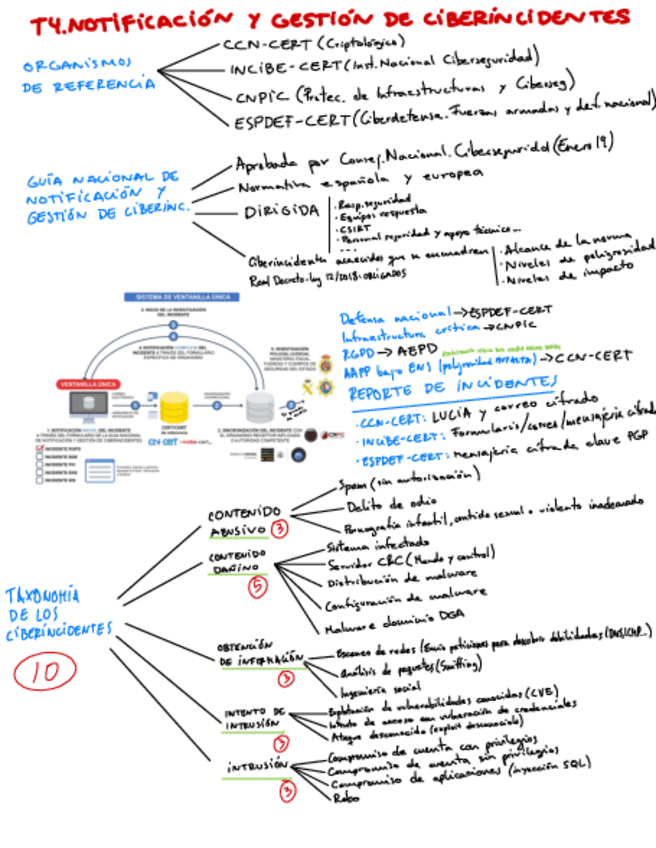 T4. NOTIFICACIÓN Y GESTIÓN DE CIBERINCIDENTES
ORGANISMOS
DE REFERENCIA
CCN-CERT (Criptológico)
INCIBE-CERT (Inst. Nacional Ciberseguridad)
CNPIC (Protec. de Infraestructuras y Ciberseg)
ESPDEF-CERT (Ciberdefensa. Fuerzas armadas y def. nacional)
GUÍA NACIONAL DE
NOTIFICACIÓN Y
GESTIÓN DE CIBERINC.
Aprobada por Consej. Nacional. Ciberseguridad (Enero 19)
Normativa española y europea
DIRIGIDA
· Resp. seguridad
· Equipos respuesta
· CSIRT
· Personal seguridad y apoyo técnico...
...
Ciberincidentes acaecidos que se encuadren
Real Decreto-ley 12/2018: OBLIGADOS
· Alcance de la norma
· Niveles de peligrosidad
· Niveles de impacto
SISTEMA DE VENTANILLA ÚNICA
3. INICIO DE LA INVESTIGACIÓN
DEL INCIDENTE
4. NOTIFICACIÓN COMPLETA DEL
INCIDENTE A TRAVÉS DEL FORMULARIO
ESPECÍFICO DE ORGANISMO
5. INVESTIGACIÓN
POLICIAL/JUDICIAL
MINISTERIO FISCAL
FUERZAS Y CUERPOS DE
SEGURIDAD DEL ESTADO
VENTANILLA ÚNICA
CSIRT/CERT
de referencia
1. NOTIFICACIÓN INICIAL DEL INCIDENTE
A TRAVÉS DEL FORMULARIO DE LA GUÍA NACIONAL
DE NOTIFICACIÓN Y GESTIÓN DE CIBERINCIDENTES
2. SINCRONIZACIÓN DEL INCIDENTE CON
EL ORGANISMO RECEPTOR IMPLICADO
O AUTORIDAD COMPETENTE
INCIDENTE RGPD
INCIDENTE PIC
Defensa nacional → ESPDEF-CERT
Infraestructura crítica → CNPIC
RGPD → AEPD
AAPP bajo ENS (peligrosidad → CCN-CERT
REPORTE DE INCIDENTES
· CCN-CERT: LUCIA y correo cifrado
· INCIBE-CERT: Formulario/correo/mensajería cifrada
· ESPDEF-CERT: mensajería cifrada clave PGP
TAXONOMÍA
DE LOS
CIBERINCIDENTES
10
CONTENIDO
ABUSIVO 3
Spam (sin autorización)
Delito de odio
Pornografía infantil, contenido sexual o violento inadecuado
CONTENIDO
DAÑINO
5
Sistema infectado
Servidor C&C (Mando y control)
Distribución de malware
Configuración de malware
Malware dominio DGA
OBTENCIÓN
DE INFORMACIÓN
3
Escaneo de redes (Envío peticiones para descubrir debilidades (DNS/ICMP...)
Análisis de paquetes (Sniffing)
Ingeniería social
INTENTO DE
INTRUSIÓN
3
Explotación de vulnerabilidades conocidas (CVE)
Intento de acceso con vulneración de credenciales
Ataque desconocido (exploit desconocido)
INTRUSIÓN
3
Compromiso de cuenta con privilegios
Compromiso de cuenta sin privilegios
Compromiso de aplicaciones (inyección SQL)
Robo